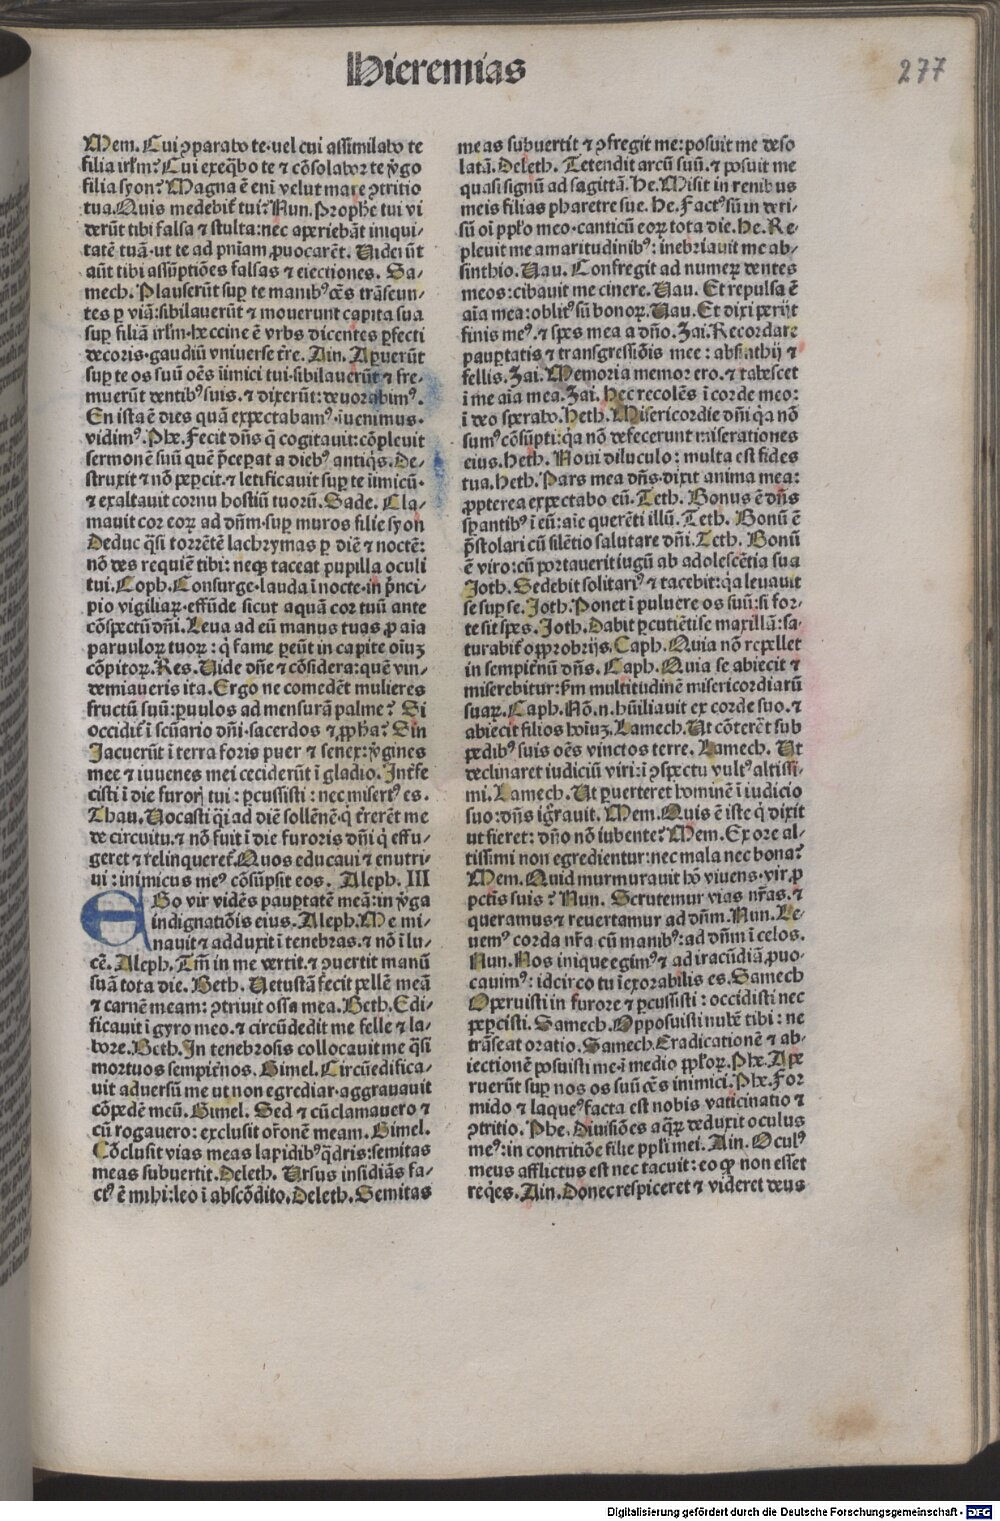 Hieremias
277
Mem. Cui ꝯparabo te·vel cui assimilabo te
filia irłm? Cui exeq̃bo te ⁊ cõsolabor te ꝟgo
filia syon? Magna ẽ enĩ velut mare ꝯtritio
tua. Quis medebiť tui? Nun. Prophẽ tui vi
derũt tibi falsa ⁊ stulta: nec aperiebãt iniqui⸗
tatẽ tuã·ut te ad pnĩam ꝓuocarẽt. Uiderũt
aũt tibi assũptiões falsas ⁊ eiectiones. Sa⸗
mech. Plauserũt suꝑ te manibꝰ oẽs trãseun⸗
tes ꝑ viã: sibilauerũt ⁊ mouerunt capita sua
suꝑ filiã irłm·heccine ẽ vrbs dicentes ꝑfecti
decoris·gaudiũ vniuerse tr̃e. Ain. Aꝑuerũt
suꝑ te os suũ oẽs ĩimici tui·sibilauerũt ⁊ fre⸗
muerũt dentibꝰ suis. ⁊ dixerũt: deuorabimꝰ.
En ista ẽ dies quã expectabamꝰ·ĩuenimus·
vidimꝰ. Phe. Fecit dñs q̃ cogitauit: cõpleuit
sermonẽ suũ quẽ p̃ceperat a diebꝰ antiq̃s. De⸗
struxit ⁊ nõ peꝑcit·⁊ letificauit suꝑ te ĩimicũ·
⁊ exaltauit cornu hostiũ tuorũ. Sade. Cla⸗
mauit cor eoꝝ ad dñm·suꝑ muros filie syon
Deduc q̃si torrẽtẽ lachrymas ꝑ diẽ ⁊ noctẽ:
nõ des requiẽ tibi: neqꝫ taceat pupilla oculi
tui. Coph. Consurge·lauda ĩ nocte·in p̃nci⸗
pio vigiliaꝝ·effũde sicut aquã cor tuũ ante
cõspectũ dñi. Leua ad eũ manus tuas ꝓ aĩa
paruuloꝝ tuoꝝ: q̃ fame ꝑeũt in capite oĩuꝫ
cõpitoꝝ. Res. Uide dñe ⁊ cõsidera: quẽ vin⸗
demiaueris ita. Ergo ne comedẽt mulieres
fructũ suũ: ꝑuulos ad mensurã palme? Si
occidiť ĩ scũario dñi·sacerdos ⁊ ꝓpha? Sin
Jacuerũt ĩ terra foris puer ⁊ senex: ꝟgines
mee ⁊ iuuenes mei ceciderũt ĩ gladio. Int̃fe
cisti ĩ die furorꝭ tui: ꝑcussisti: nec misertꝰ es.
Thau. Uocasti q̃si ad diẽ sollẽnẽ·q̃ t̃rerẽt me
de circuitu·⁊ nõ fuit ĩ die furoris dñi q̃ effu⸗
geret ⁊ relinquereť. Quos educaui ⁊ enutri⸗
ui: inimicus meꝰ cõsũpsit eos. Aleph. III
EGo vir vidẽs pauꝑtatẽ meã: in ꝟga
indignatiõis eius. Aleph. Me mi⸗
nauit ⁊ adduxit ĩ tenebras·⁊ nõ ĩ lu⸗
cẽ. Aleph. Tm̃ in me vertit·⁊ ꝯuertit manũ
suã tota die. Beth. Uetustã fecit pellẽ meã
⁊ carnẽ meam: ꝯtriuit ossa mea. Beth. Edi⸗
ficauit ĩ gyro meo·⁊ circũdedit me felle ⁊ la⸗
bore. Beth. In tenebrosis collocauit me q̃si
mortuos sempitẽnos. Gimel. Circũedifica⸗
uit aduersũ me ut non egrediar·aggrauauit
cõpedẽ meũ. Gimel. Sed ⁊ cũ clamauero ⁊
cũ rogauero: exclusit or̃onẽ meam. Gimel.
Cõclusit vias meas lapidibꝰ q̃dris: semitas
meas subuertit. Deleth. Ursus insidiãs fa⸗
ctꝰ ẽ mihi: leo ĩ abscõdito. Deleth. Semitas
meas subuertit ⁊ ꝯfregit me: posuit me deso
latã. Deleth. Tetendit arcũ suũ·⁊ posuit me
quasi signũ ad sagittã. He. Misit in renibus
meis filias pharetre sue. He. Factꝰ sũ in deri⸗
sũ oĩ pplo meo·canticũ eoꝝ tota die. He. Re⸗
pleuit me amaritudinibꝰ: inebriauit me ab⸗
sinthio. Uau. Confregit ad numeꝝ dentes
meos: cibauit me cinere. Uau. Et repulsa ẽ
aĩa mea: oblitꝰ sũ bonoꝝ. Uau. Et dixi perijt
finis meꝰ·⁊ spes mea a dño. Zai. Recordare
pauꝑtatis ⁊ transgressiõis mee: absinthij ⁊
fellis. Zai. Memoria memor ero·⁊ tabescet
ĩ me aĩa mea. Zai. Hec recolẽs ĩ corde meo:
ĩ deo sperabo. Heth. Misericordie dñi q̃a nõ
sumꝰ cõsũpti: q̃a nõ defecerunt miserationes
eius. Heth. Noui diluculo: multa est fides
tua. Heth. Pars mea dñs·dixit anima mea:
ꝓpterea expectabo eũ. Teth. Bonus ẽ dñs
sꝑantibꝰ ĩ eũ: aĩe querẽti illũ. Teth. Bonũ ẽ
p̃stolari cũ silẽtio salutare dñi. Teth. Bonũ
ẽ viro: cũ portauerit iugũ ab adolescẽtia sua
Joth. Sedebit solitariꝰ ⁊ tacebit: q̃a leuauit
se suꝑ se. Joth. Ponet ĩ puluere os suũ: si for⸗
te sit spes. Joth. Dabit ꝑcutiẽti se maxillã: sa⸗
turabiť opprobrijs. Caph. Quia nõ repellet
in sempitẽnũ dñs. Caph. Quia se abiecit ⁊
miserebitur: ẜm multitudinẽ misericordiarũ
suaꝝ. Caph. Nõ.n. hũiliauit ex corde suo·⁊
abiecit filios hoĩuꝫ. Lamech. Ut cõterẽt sub
pedibꝰ suis oẽs vinctos terre. Lamech. Ut
declinaret iudiciũ viri: ĩ ꝯspectu vultꝰ altissi⸗
mi. Lamech. Ut ꝑuerteret hominẽ ĩ iudicio
suo: dñs ig̃rauit. Mem. Quis ẽ iste q̃ dixit
ut fieret: dño nõ iubente? Mem. Ex ore al⸗
tissimi non egredientur: nec mala nec bona?
Mem. Quid murmurauit hõ viuens·vir ꝓ
pctis suis? Nun. Scrutemur vias nr̃as·⁊
queramus ⁊ reuertamur ad dñm. Nun. Le⸗
uemꝰ corda nr̃a cũ manibꝰ: ad dñm ĩ celos.
Nun. Nos inique egimꝰ ⁊ ad iracũdiã ꝓuo⸗
cauimꝰ: idcirco tu ĩexorabilis es. Samech
Operuisti in furore ⁊ ꝑcussisti: occidisti nec
peꝑcisti. Samech. Opposuisti nubẽ tibi: ne
trãseat oratio. Samech. Eradicationẽ ⁊ ab⸗
iectionẽ posuisti me·ĩ medio pploꝝ. Phe. Ape
ruerũt suꝑ nos os suũ oẽs inimici. Phe. For
mido ⁊ laqueꝰ facta est nobis vaticinatio ⁊
ꝯtritio. Phe. Diuisiões aq̃ꝝ deduxit oculus
meꝰ: in contritiõe filie ppli mei. Ain. Oculꝰ
meus afflictus est nec tacuit: eo ꝙ non esset
req̃es. Ain. Donec respiceret ⁊ videret deus
Digitalisierung gefördert durch die Deutsche Forschungsgemeinschaft - DFG